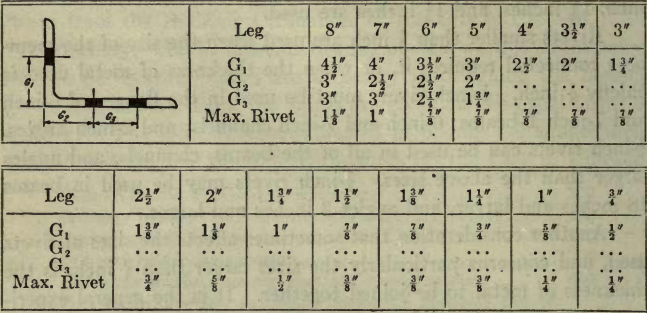 Leg 8″ 7″ 6″ 5″ 4″ 3½″ 3″
G₁ 4½″ 4″ 3½″ 3″ 2½″ 2″ 1¾″
G₂ 3″ 2½″ 2½″ 2″ ... ... ...
G₃ 3″ 3″ 2¼″ 1¾″ ... ... ...
Max. Rivet 1⅛″ 1″ ⅞″ ⅞″ ⅞″ ⅞″ ⅞″
G₁
G₂ G₃
Leg 2½″ 2″ 1¾″ 1½″ 1⅜″ 1¼″ 1″ ¾″
G₁ 1⅜″ 1⅛″ 1″ ⅞″ ⅞″ ¾″ ⅝″ ½″
G₂ ... ... ... ... ... ... ... ...
G₃ ... ... ... ... ... ... ... ...
Max. Rivet ¾″ ⅝″ ½″ ⅜″ ⅜″ ⅜″ ¼″ ¼″